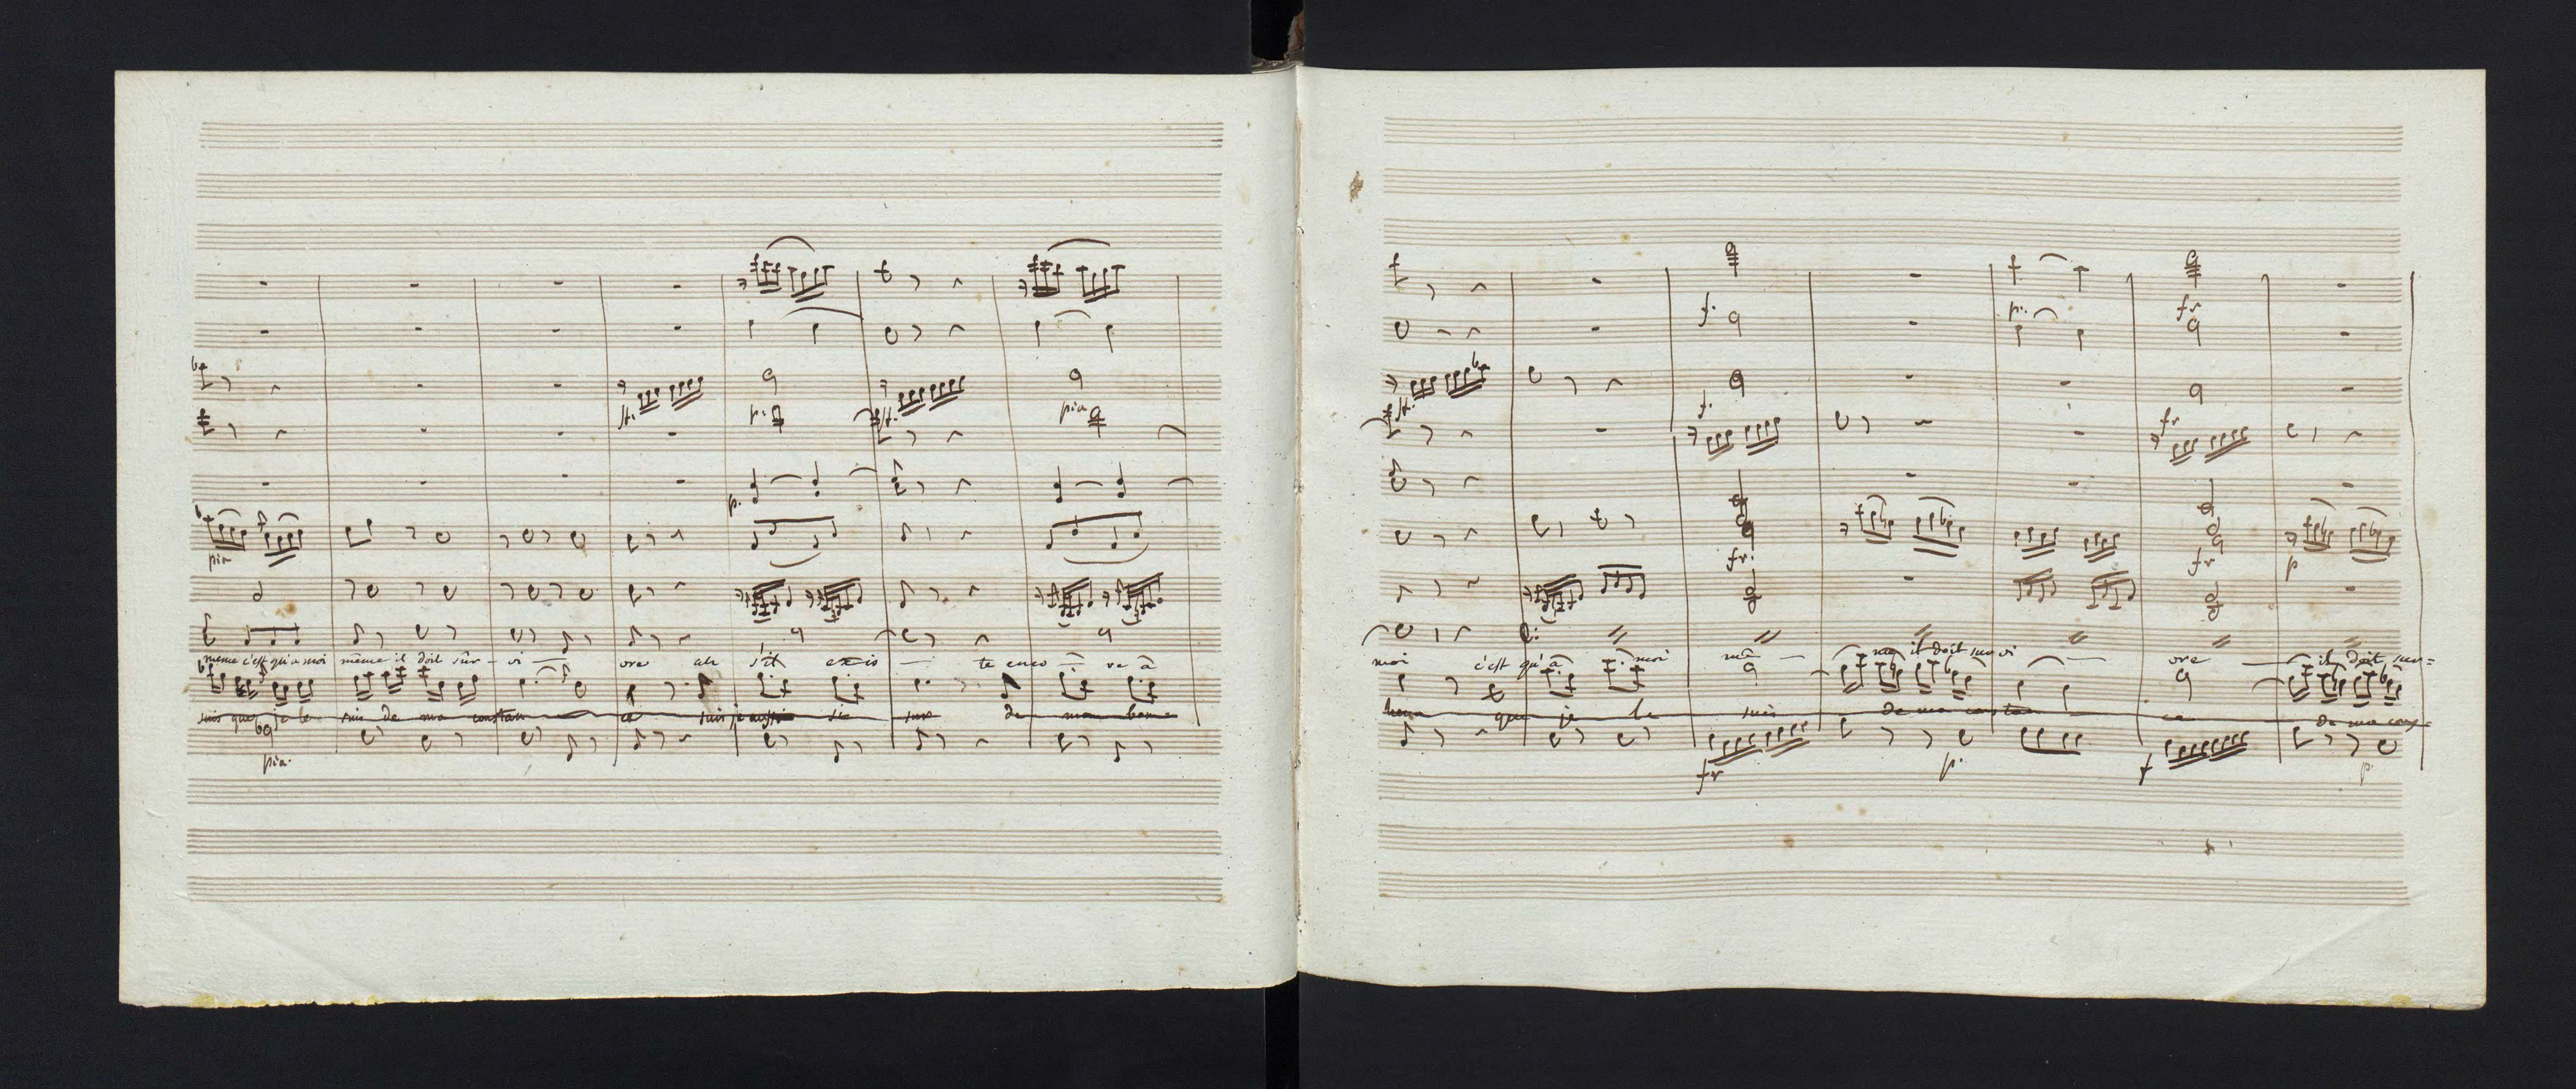 st. p. st. pia
p.
pia
même c'est qu'a moi même il doit sur - vi — ore ah s'il exis — te enco — re à
suis que je le suis de ma constan ce suis je aussi sur de mon bon=
pia.
p. fr
f.
st. f. fr
fr. fr p
moi c'est qu'à moi mê — me il doit survi — ore — il doit sur=
heur que je le suis de ma constan ce de ma cons=
fr p. f p